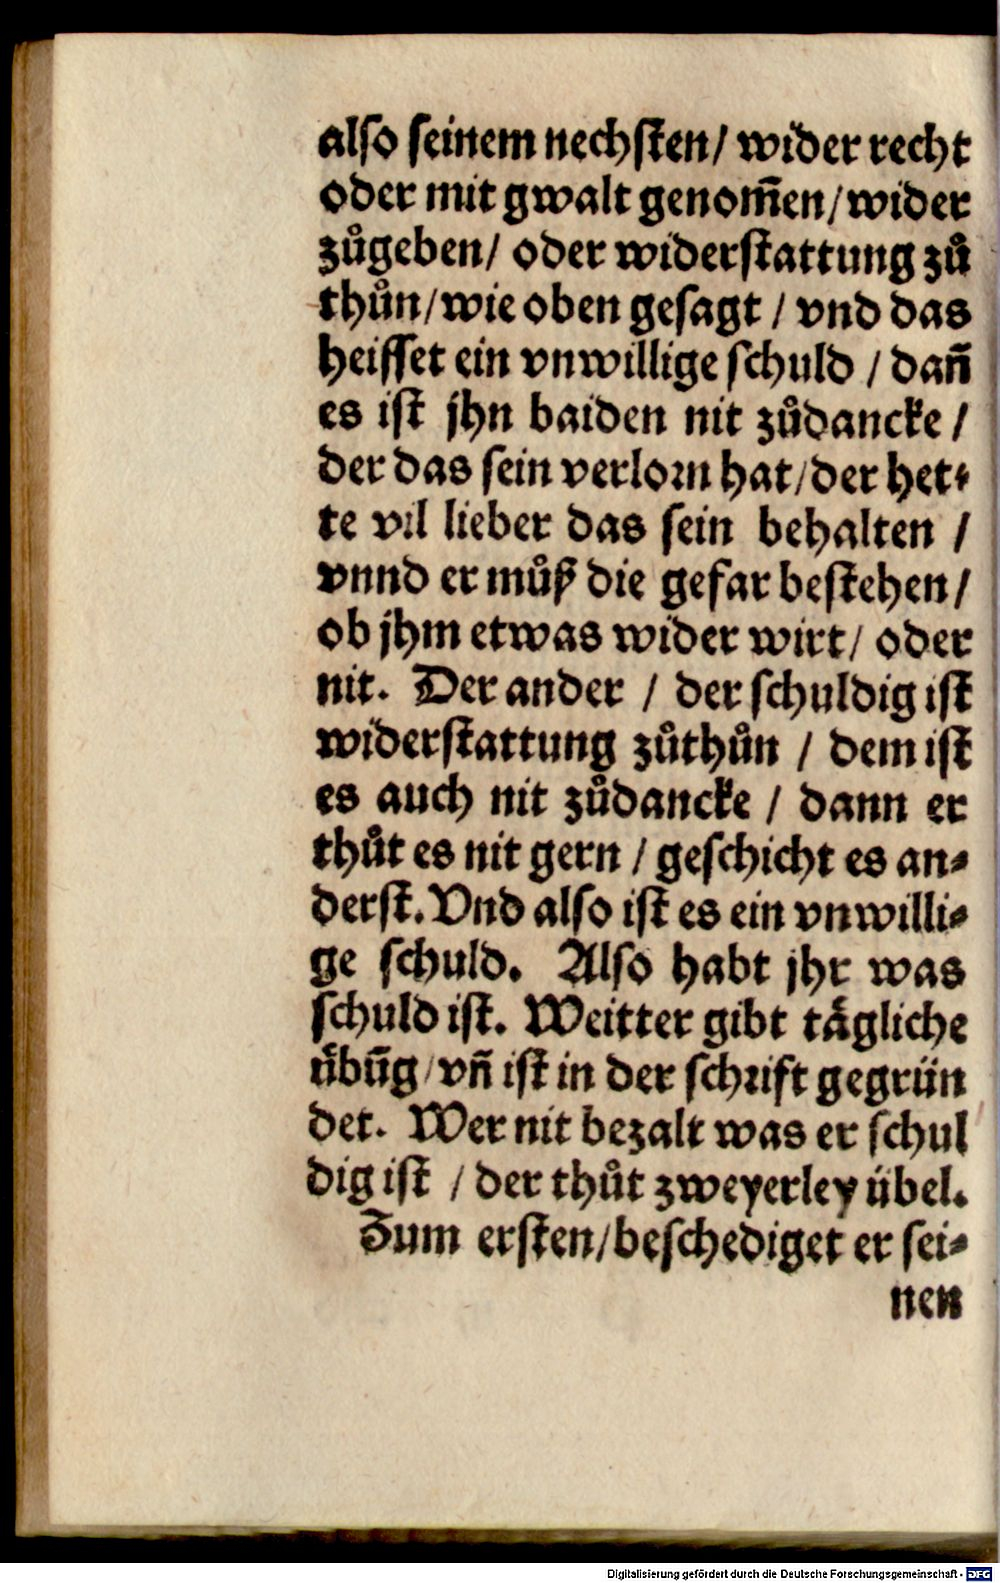 also seinem nechsten/ wider recht
oder mit gwalt genom̃en/wider
zůgeben/ oder widerstattung zů
thůn/wie oben gesagt / vnd das
heisset ein vnwillige schuld / dañ
es ist jhn baiden nit zůdancke /
der das sein verlorn hat/der het⸗
te vil lieber das sein behalten /
vnnd er můß die gefar bestehen/
ob jhm etwas wider wirt/ oder
nit. Der ander / der schuldig ist
widerstattung zůthůn / dem ist
es auch nit zůdancke / dann er
thůt es nit gern / geschicht es an⸗
derst. Vnd also ist es ein vnwilli⸗
ge schuld. Also habt jhr was
schuld ist. Weitter gibt tägliche
übũg/vñ ist in der schrift gegrün
det. Wer nit bezalt was er schul
dig ist / der thůt zweyerley übel.
Zum ersten/beschediget er sei⸗
nen
Digitalisierung gefördert durch die Deutsche Forschungsgemeinschaft - DFG